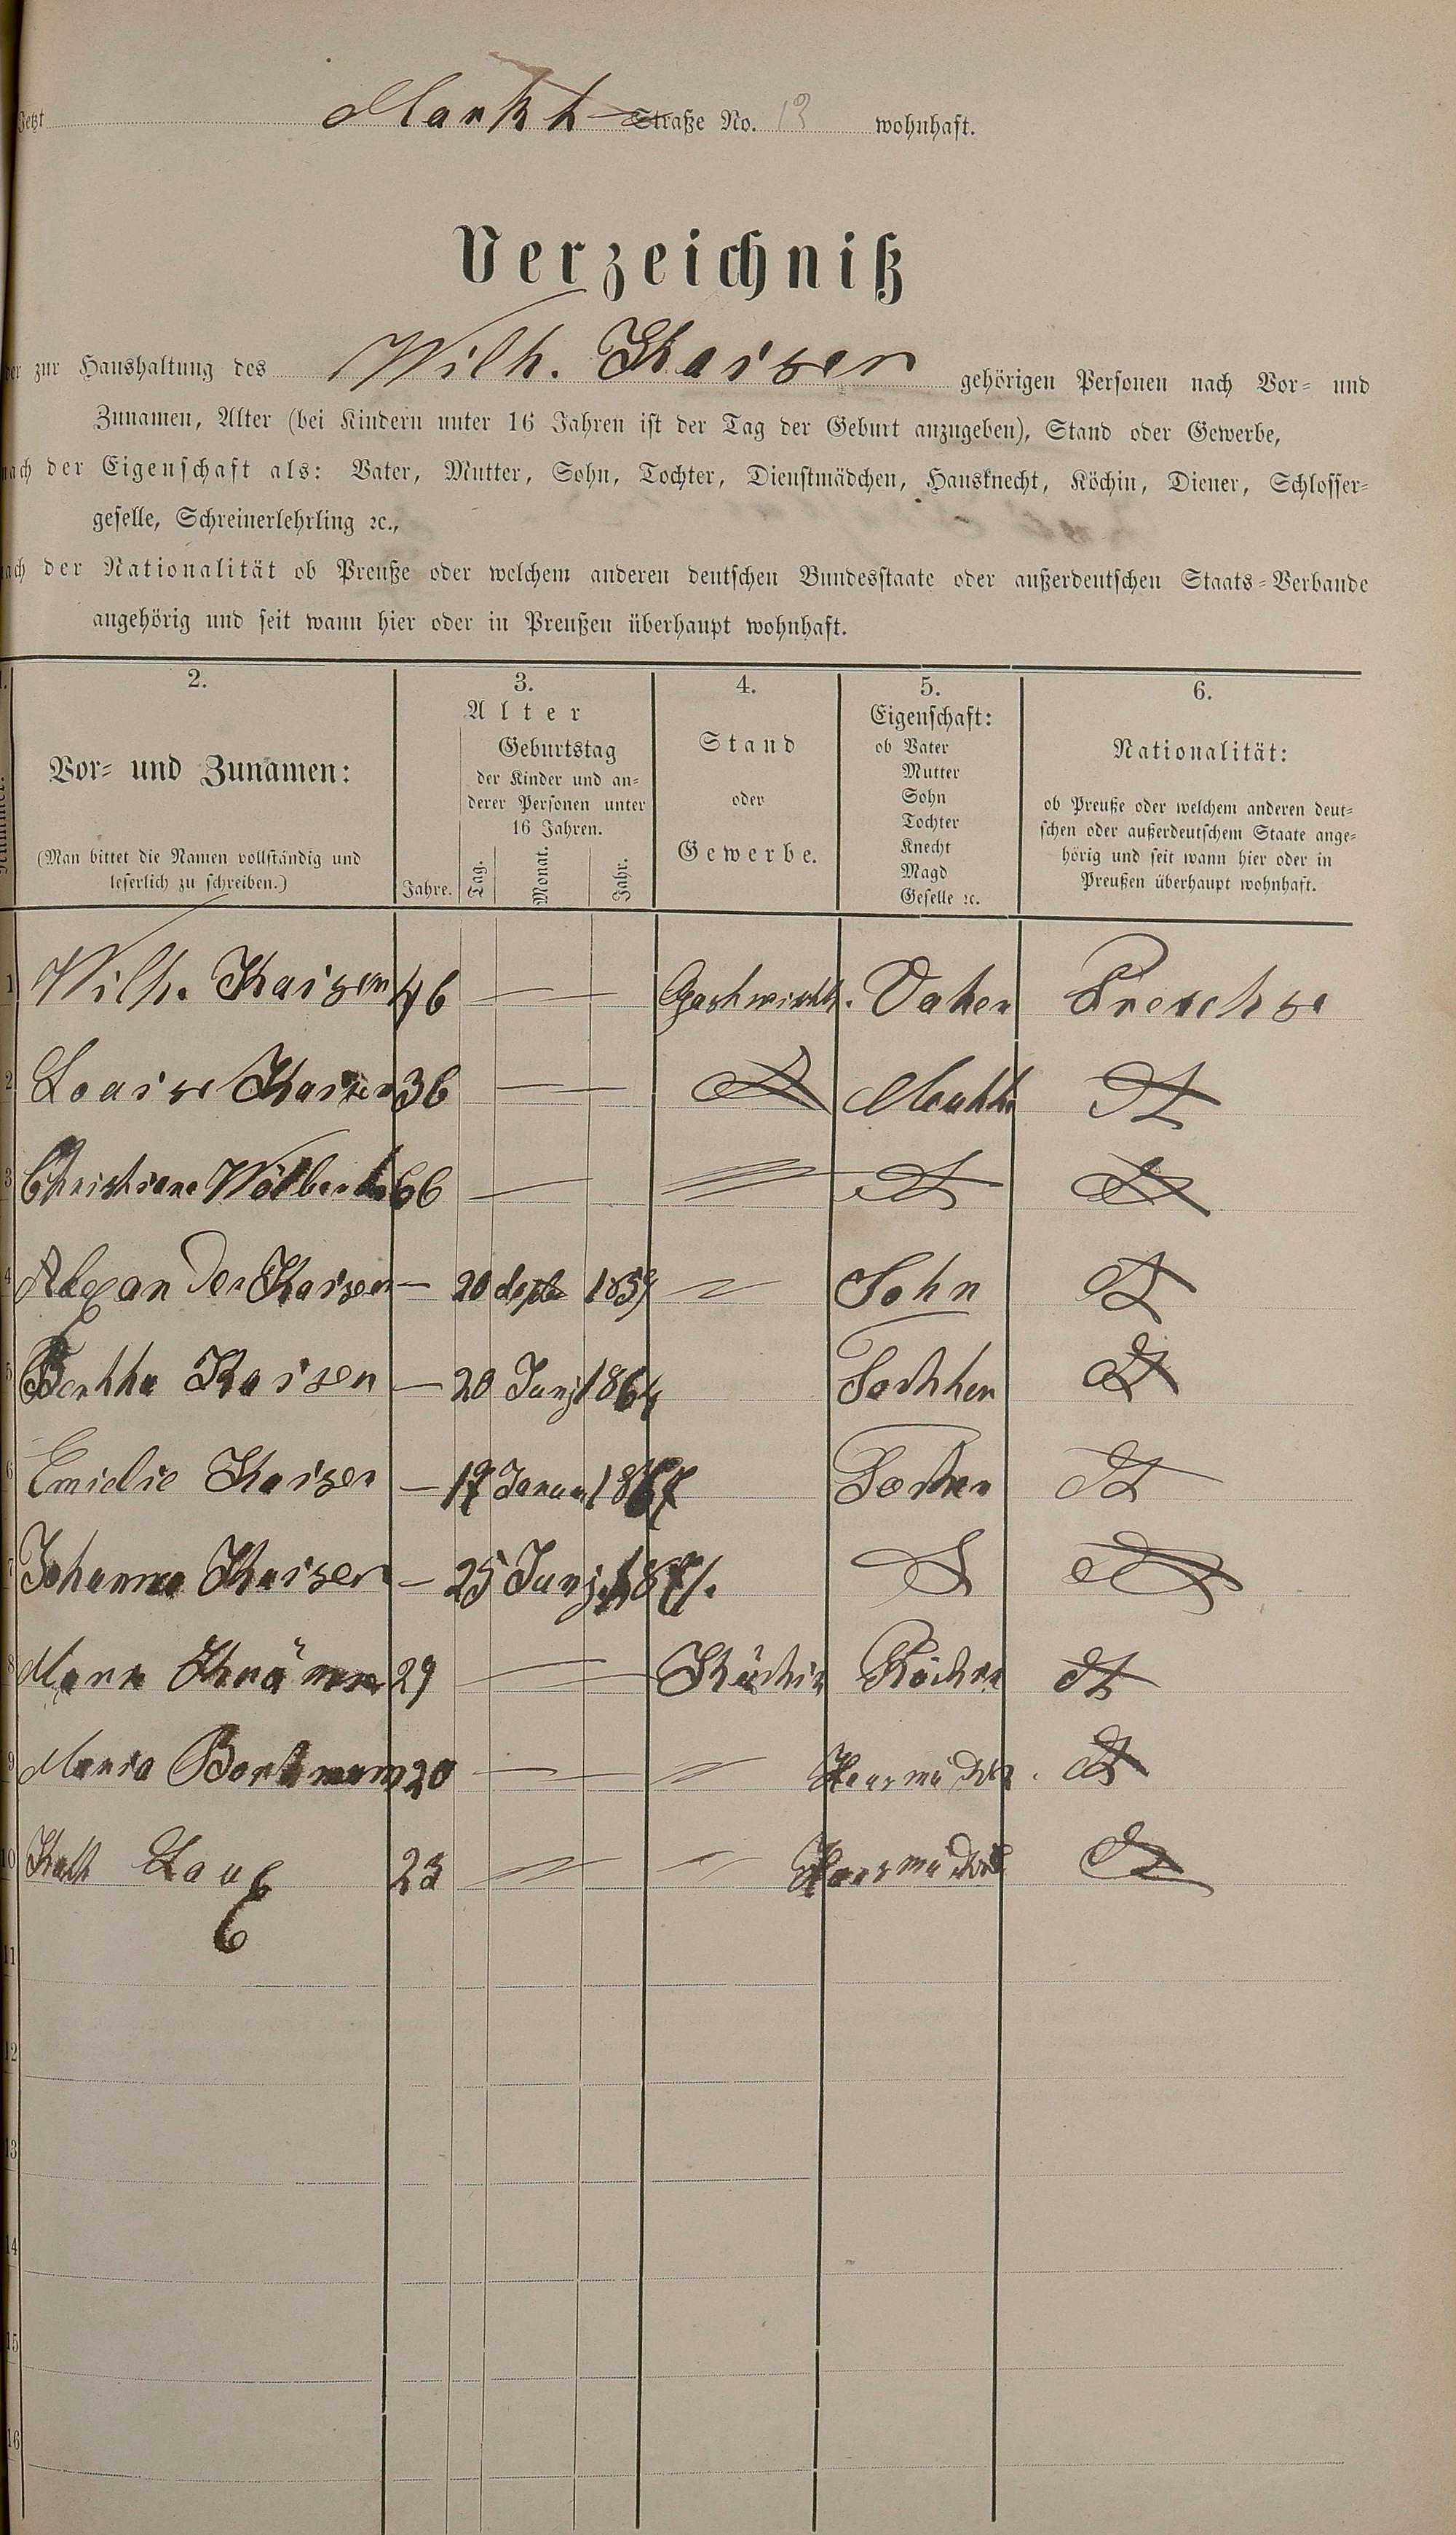 Jetzt Markt Straße No. 13 wohnhaft.
Verzeichniß
der zur Haushaltung des Wilh. Kaiser gehörigen Personen nach Vor- und
Zunamen, Alter (bei Kindern unter 16 Jahren ist der Tag der Geburt anzugeben), Stand oder Gewerbe,
nach der Eigenschaft als: Vater, Mutter, Sohn, Tochter, Dienstmädchen, Hausknecht, Köchin, Diener, Schlosser-
geselle, Schreinerlehrling ꝛc.,
nach der Nationalität ob Preuße oder welchem anderen deutschen Bundesstaate oder außerdeutschen Staats-Verbande
angehörig und seit wann hier oder in Preußen überhaupt wohnhaft.
1. 2. 3. 4. 5. 6.
Nummer.
Vor- und Zunamen:
(Man bittet die Namen vollständig und
leserlich zu schreiben.)
Alter
Jahre.
Geburtstag
der Kinder und an-
derer Personen unter
16 Jahren.
Tag. Monat. Jahr.
Stand
oder
Gewerbe.
Eigenschaft:
ob Vater
Mutter
Sohn
Tochter
Knecht
Magd
Geselle ꝛc.
Nationalität:
ob Preuße oder welchem anderen deut-
schen oder außerdeutschem Staate ange-
hörig und seit wann hier oder in
Preußen überhaupt wohnhaft.
1 Wilh. Kaiser 46 — Gastwirth. Vater
2 Louise Kaiser 36 — Mutter
3 Christiane 66 —
4 Alexander Kaiser — 20 Sept 1859 Sohn
5 Bertha Kaiser — 20 Juni 1864 Tochter
6 Emielie Kaiser — 17 Januar 1867 Tochter
7 Johanna Kaiser — 25 Juni 1871.
8 Maria Krämer 29 — Köchin Köchin
9 Maria 20 —
10 Kath 23
11
12
13
14
15
16